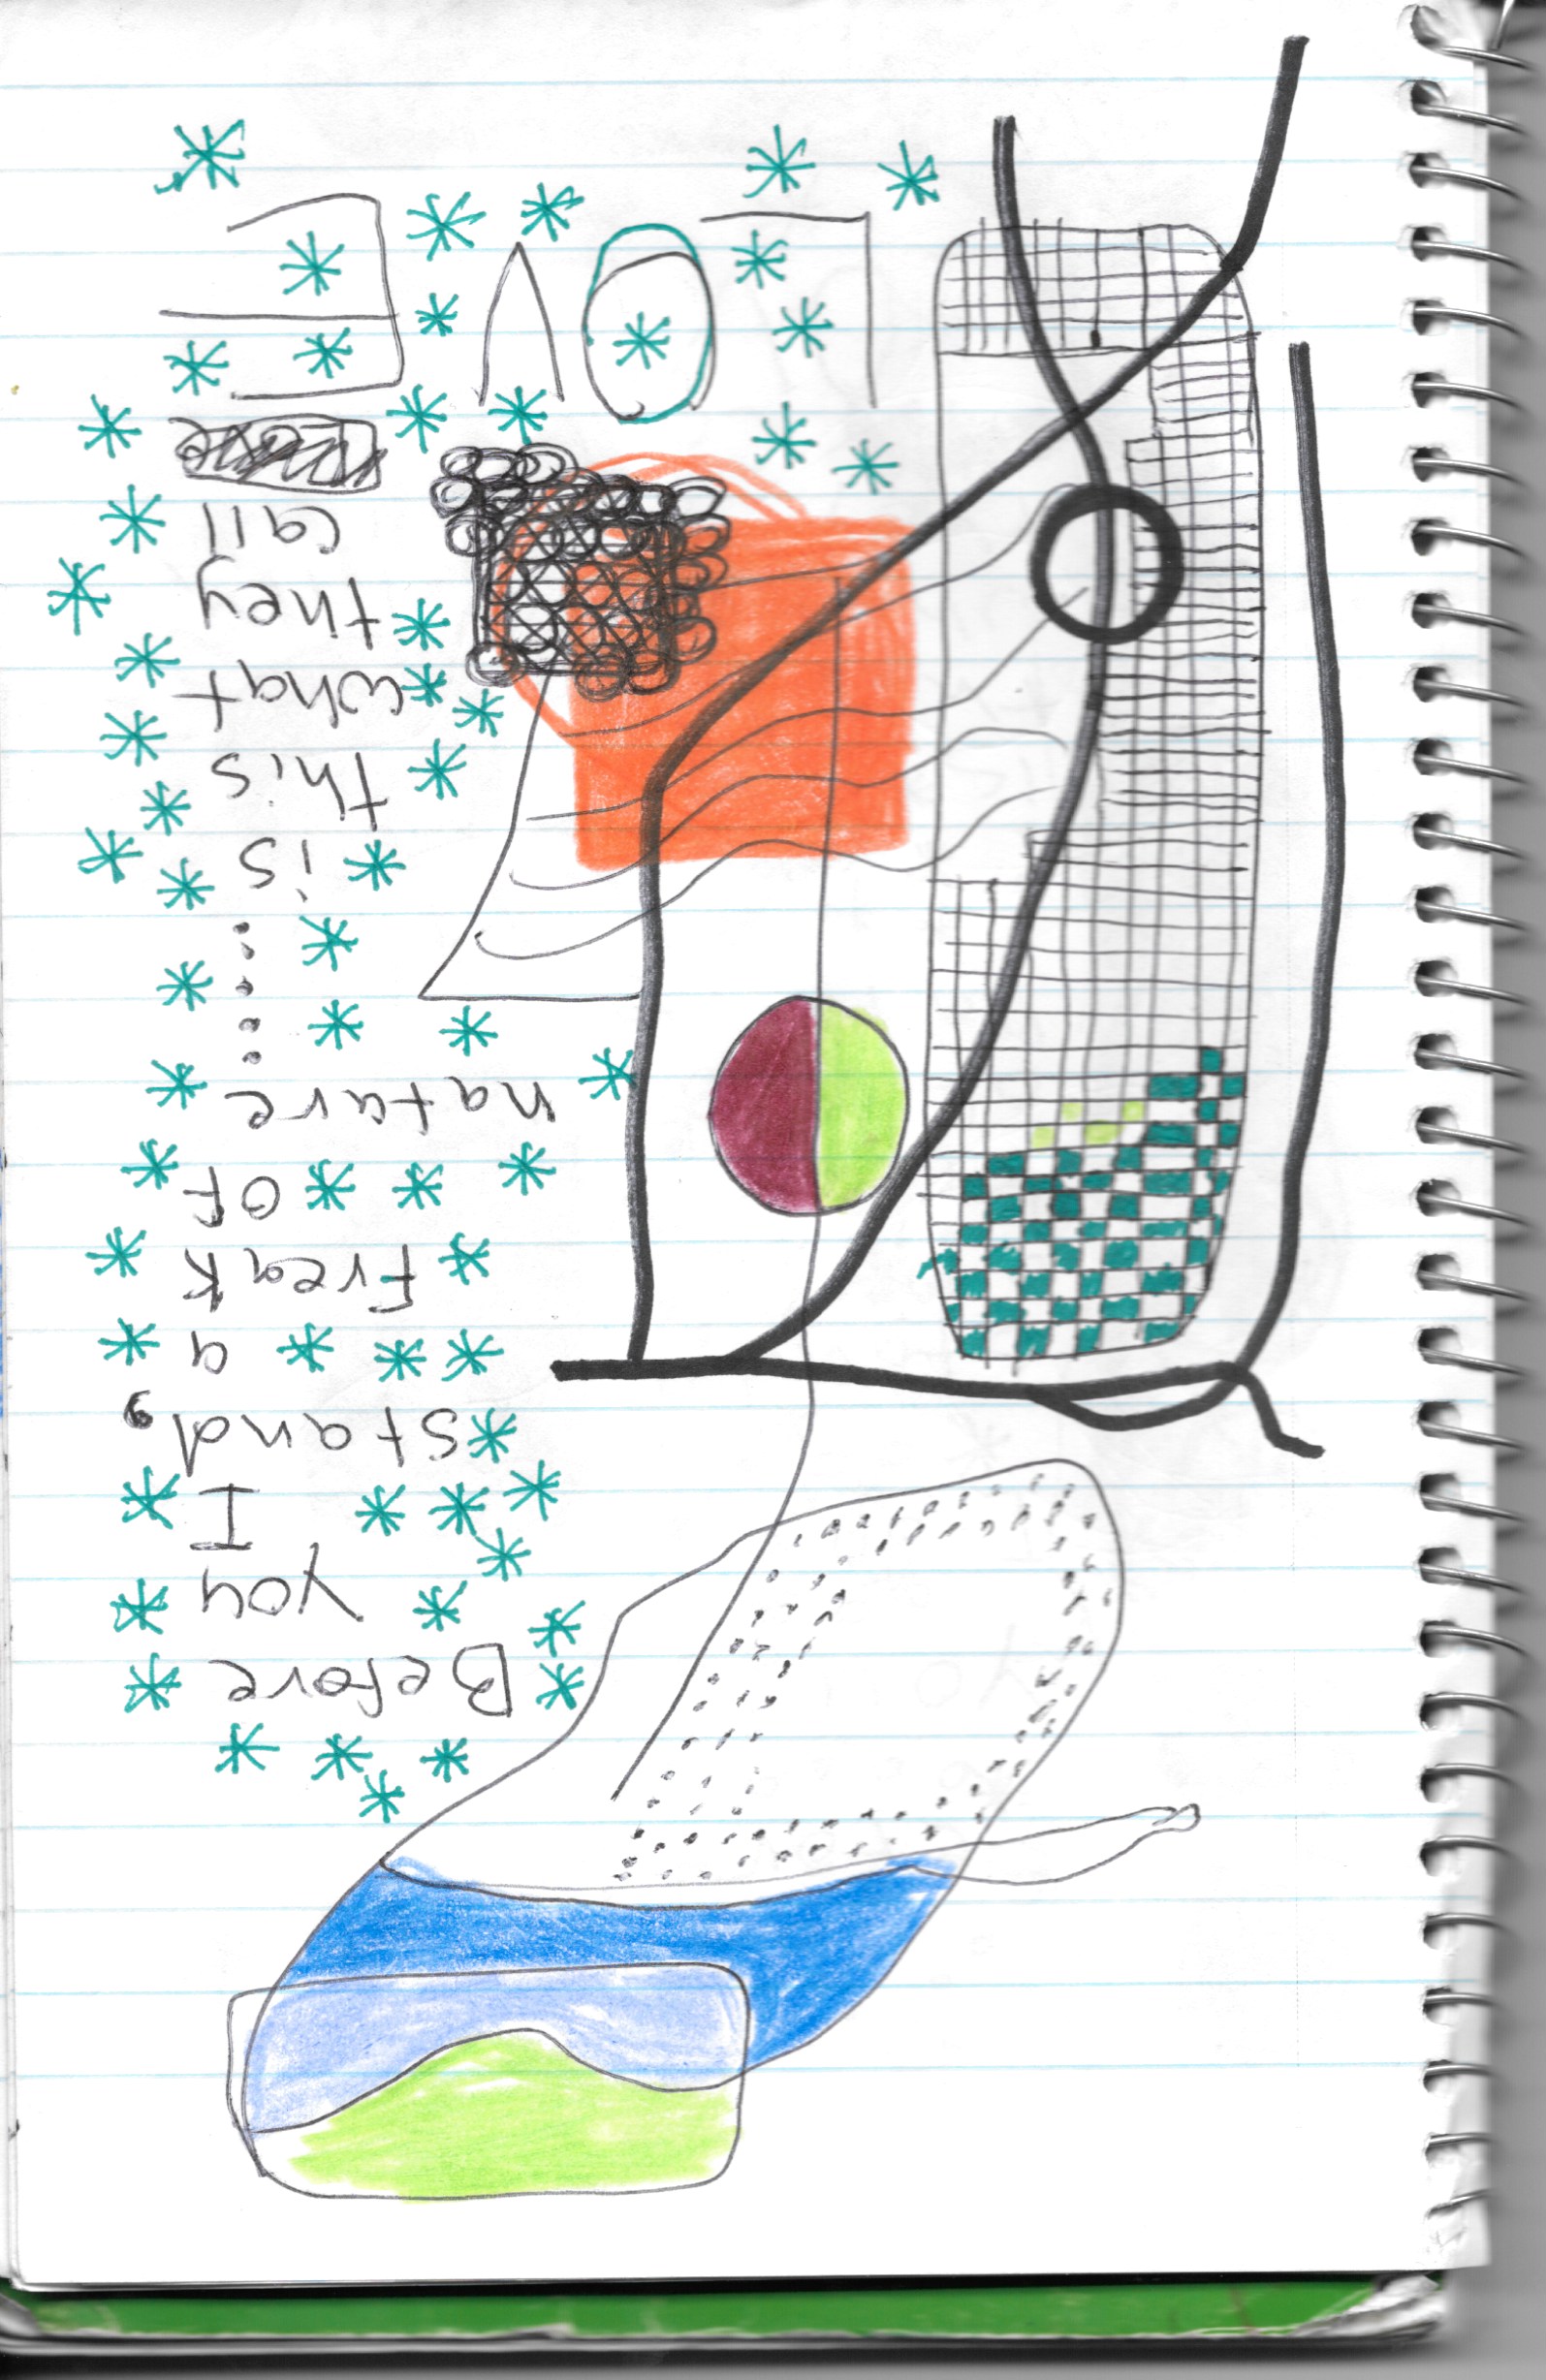 Before
you
I
stand,
a
Freak
OF
nature
.....
is
this
what
they
call
LOVE